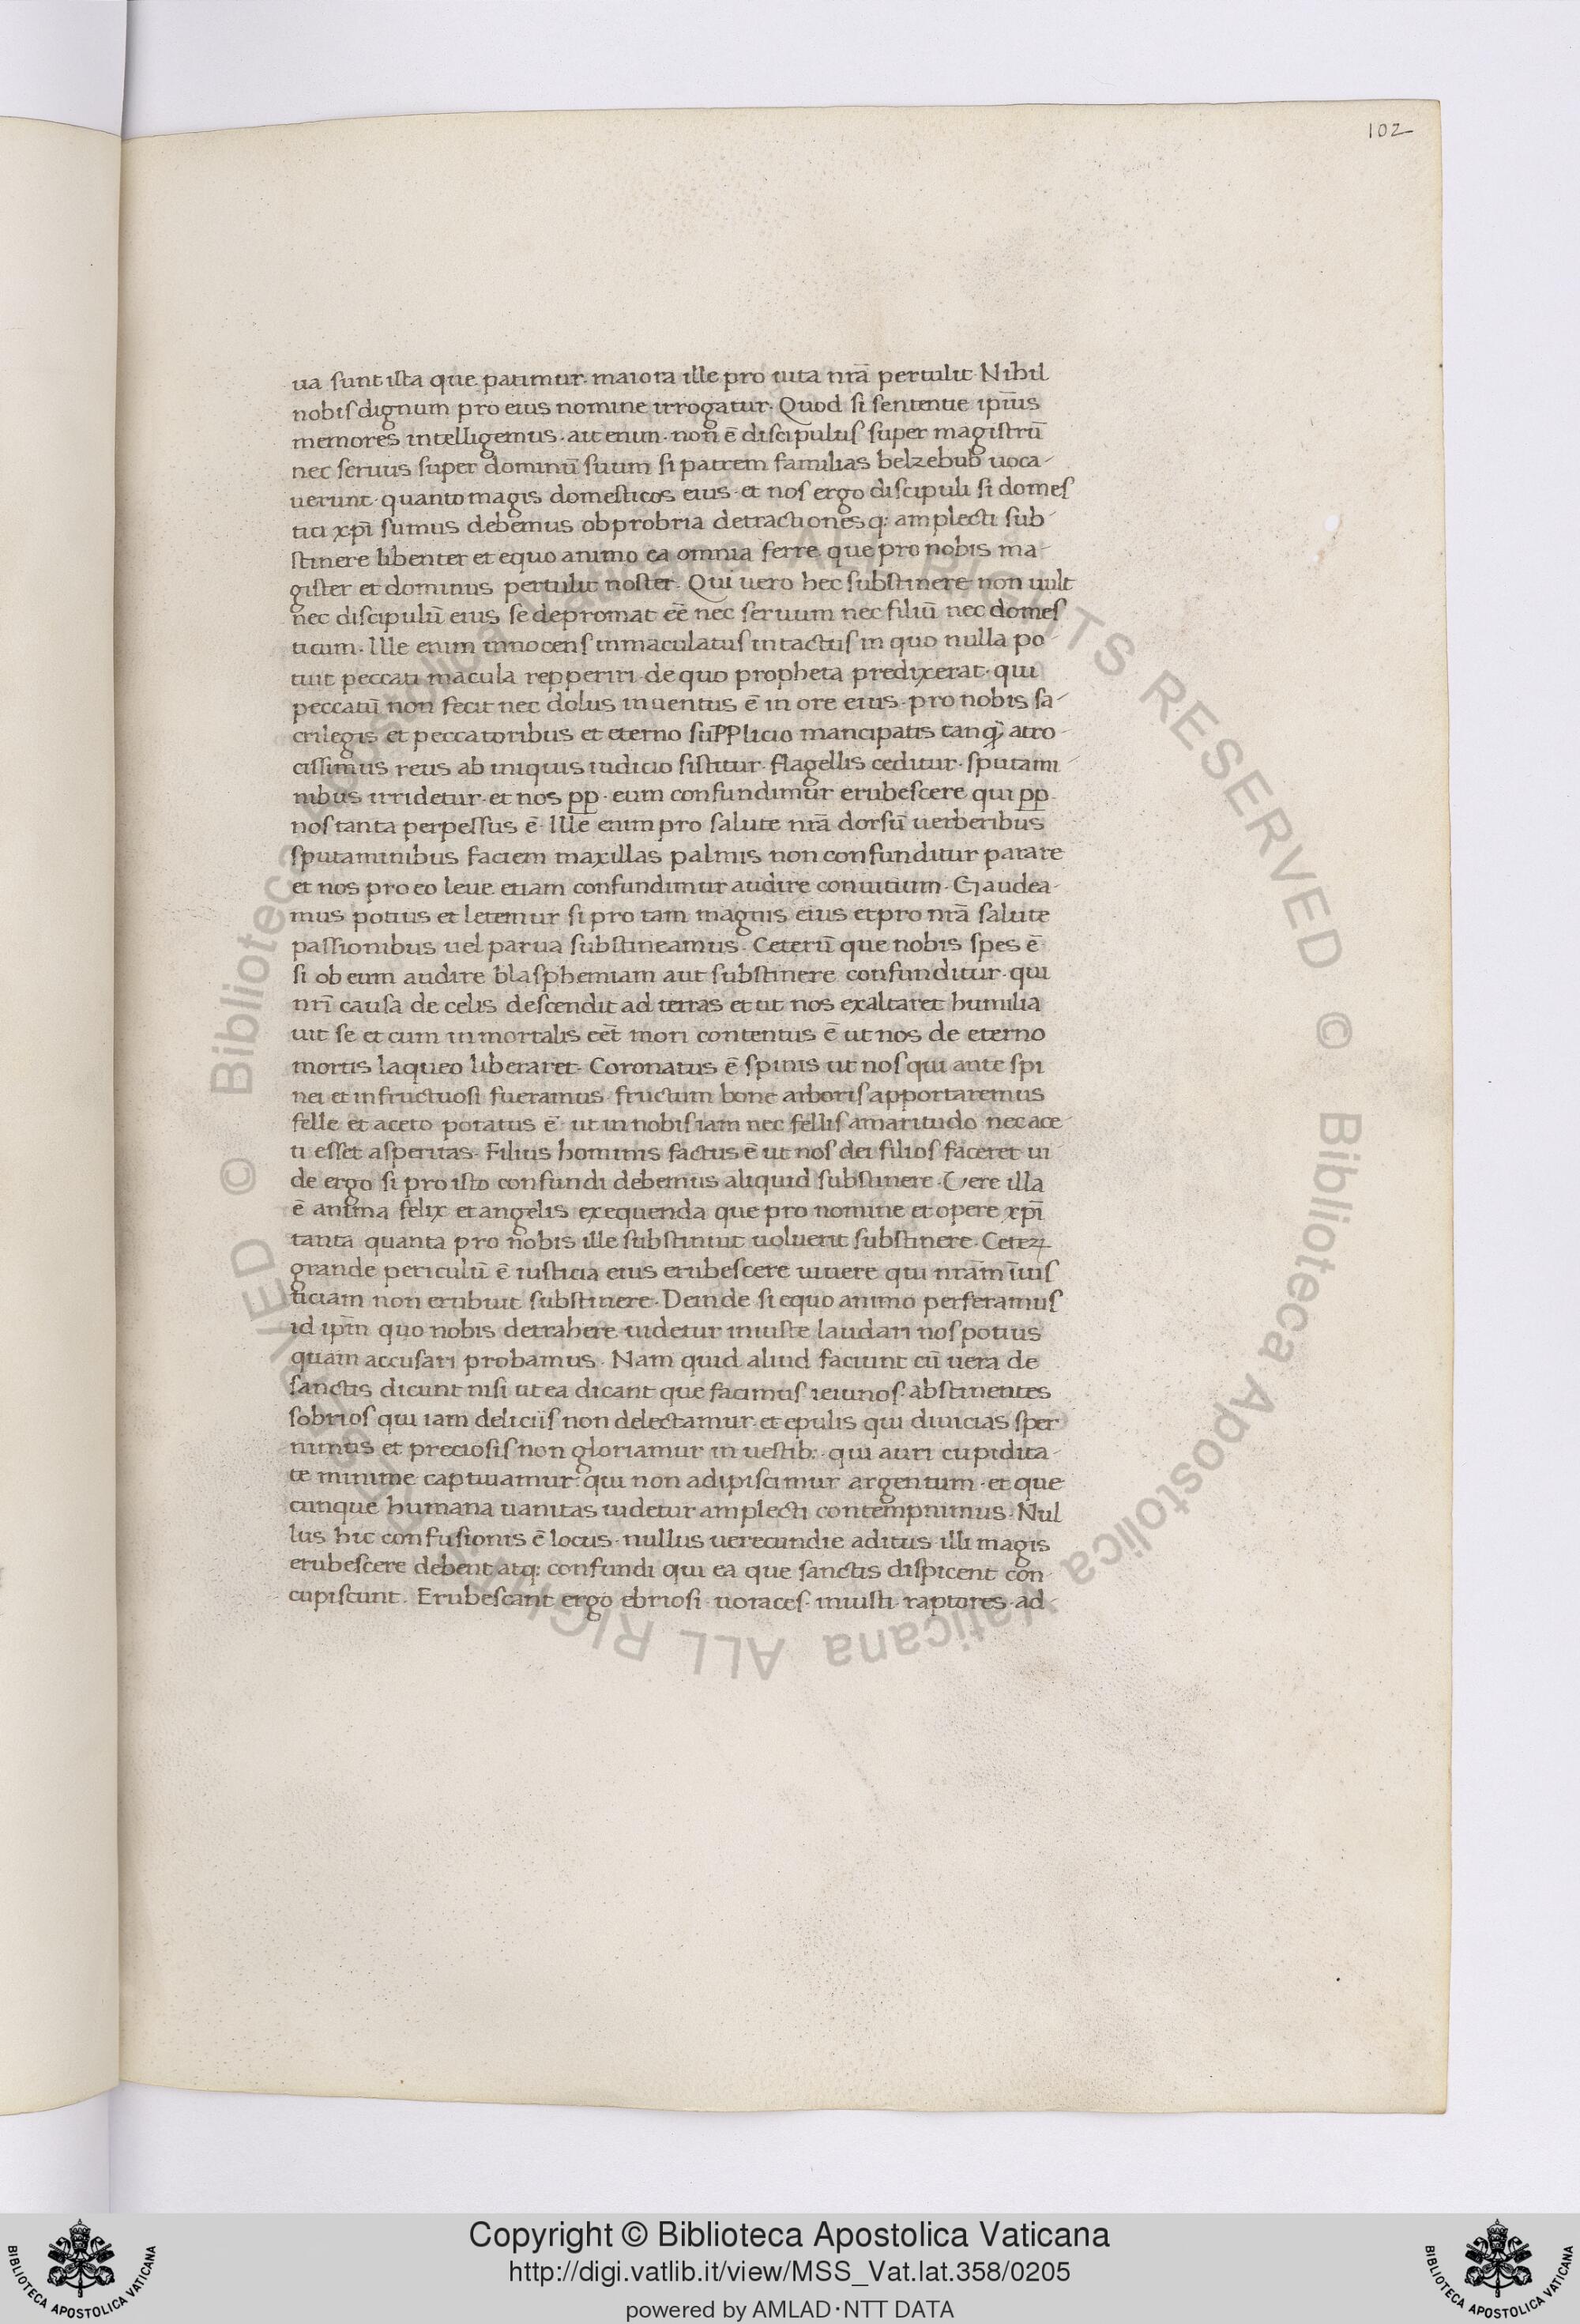 102
ua sunt ista que patimur. maiora ille pro uita nrā pertulit. Nihil
nobis dignum pro eius nomine irrogatur. Quod si sententie ipīus
memores intelligemus. ait enim. non ē discipulus super magistrū
nec seruus super dominū suum si patrem familias belzebub uoca-
uerunt. quanto magis domesticos eius. et nos ergo discipuli si domes
tici xpī sumus debemus obprobria detractiones q: amplecti sub-
stinere libenter et equo animo ea omnia ferre que pro nobis ma-
gister et dominus pertulit noster. Qui uero hec substinere non uult
nec discipulū eius se depromat eē nec seruum nec filiū nec domes
ticum. Ille enim innocens inmaculatus intactus in quo nulla po-
tuit peccati macula repperiri. de quo propheta predixerat. qui
peccatū non fecit nec dolus inuentus ē in ore eius. pro nobis sa-
crilegis et peccatoribus et eterno supplicio mancipatis tanq̄ atro-
cissimus reus ab iniquis iudicio sistitur. flagellis ceditur. sputami-
nibus irridetur. et nos pp. eum confundimur erubescere qui pp.
nos tanta perpessus ē. Ille enim pro salute nrā dorsū uerberibus
sputaminibus faciem maxillas palmis non confunditur parare
et nos pro eo leue etiam confundimur audire conuitium. Gaudea-
mus potius et letemur si pro tam magnis eius et pro nrā salute
passionibus uel parua substineamus. Ceterū que nobis spes ē
si ob eum audire blasphemiam aut substinere confunditur. qui
nrī causa de celis descendit ad terras et ut nos exaltaret humilia
uit se et cum inmortalis eēt mori contentus ē ut nos de eterno
mortis laqueo liberaret. Coronatus ē spinis ut nos qui ante spi
nei et infructuosi fueramus. fructum bone arboris apportaremus
felle et aceto potatus ē. ut in nobis iam nec fellis amaritudo nec ace-
ti esset asperitas. Filius hominis factus ē ut nos dei filios faceret ui
de ergo si pro isto confundi debemus aliquid substinere. Vere illa
ē anima felix et angelis exequenda que pro nomine et opere xpī
tanta quanta pro nobis ille substinuit uoluerit substinere. Ceteꝝ
grande periculū ē iusticia eius erubescere uiuere qui nrām īiuis
ticiam non erubuit substinere. Deinde si equo animo perferamus
id ipm̄ quo nobis detrahere uidetur iniuste laudari nos potius
quam accusari probamus. Nam quid aliud faciunt cū uera de
sanctis dicunt nisi ut ea dicant que facimus ieiunos. abstinentes
sobrios qui iam deliciis non delectamur. et epulis qui diuicias sper
nimus et preciosis non gloriamur in uestib:. qui auri cupidita-
te minime captiuamur. qui non adipiscimur argentum. et que
cunque humana uanitas uidetur amplecti contempnimus. Nul
lus hic confusionis ē locus. nullus uerecundie aditus. illi magis
erubescere debent atq: confundi qui ea que sanctis dispicent con-
cupiscunt. Erubescant ergo ebriosi. uoraces. iniusti. raptores. ad-
© Biblioteca Apostolica Vaticana ALL RIGHTS RESERVED © Biblioteca Apostolica Vaticana ALL RIGHTS RESERVED
Copyright © Biblioteca Apostolica Vaticana
http://digi.vatlib.it/view/MSS_Vat.lat.358/0205
powered by AMLAD·NTT DATA
BIBLIOTECA APOSTOLICA VATICANA
BIBLIOTECA APOSTOLICA VATICANA